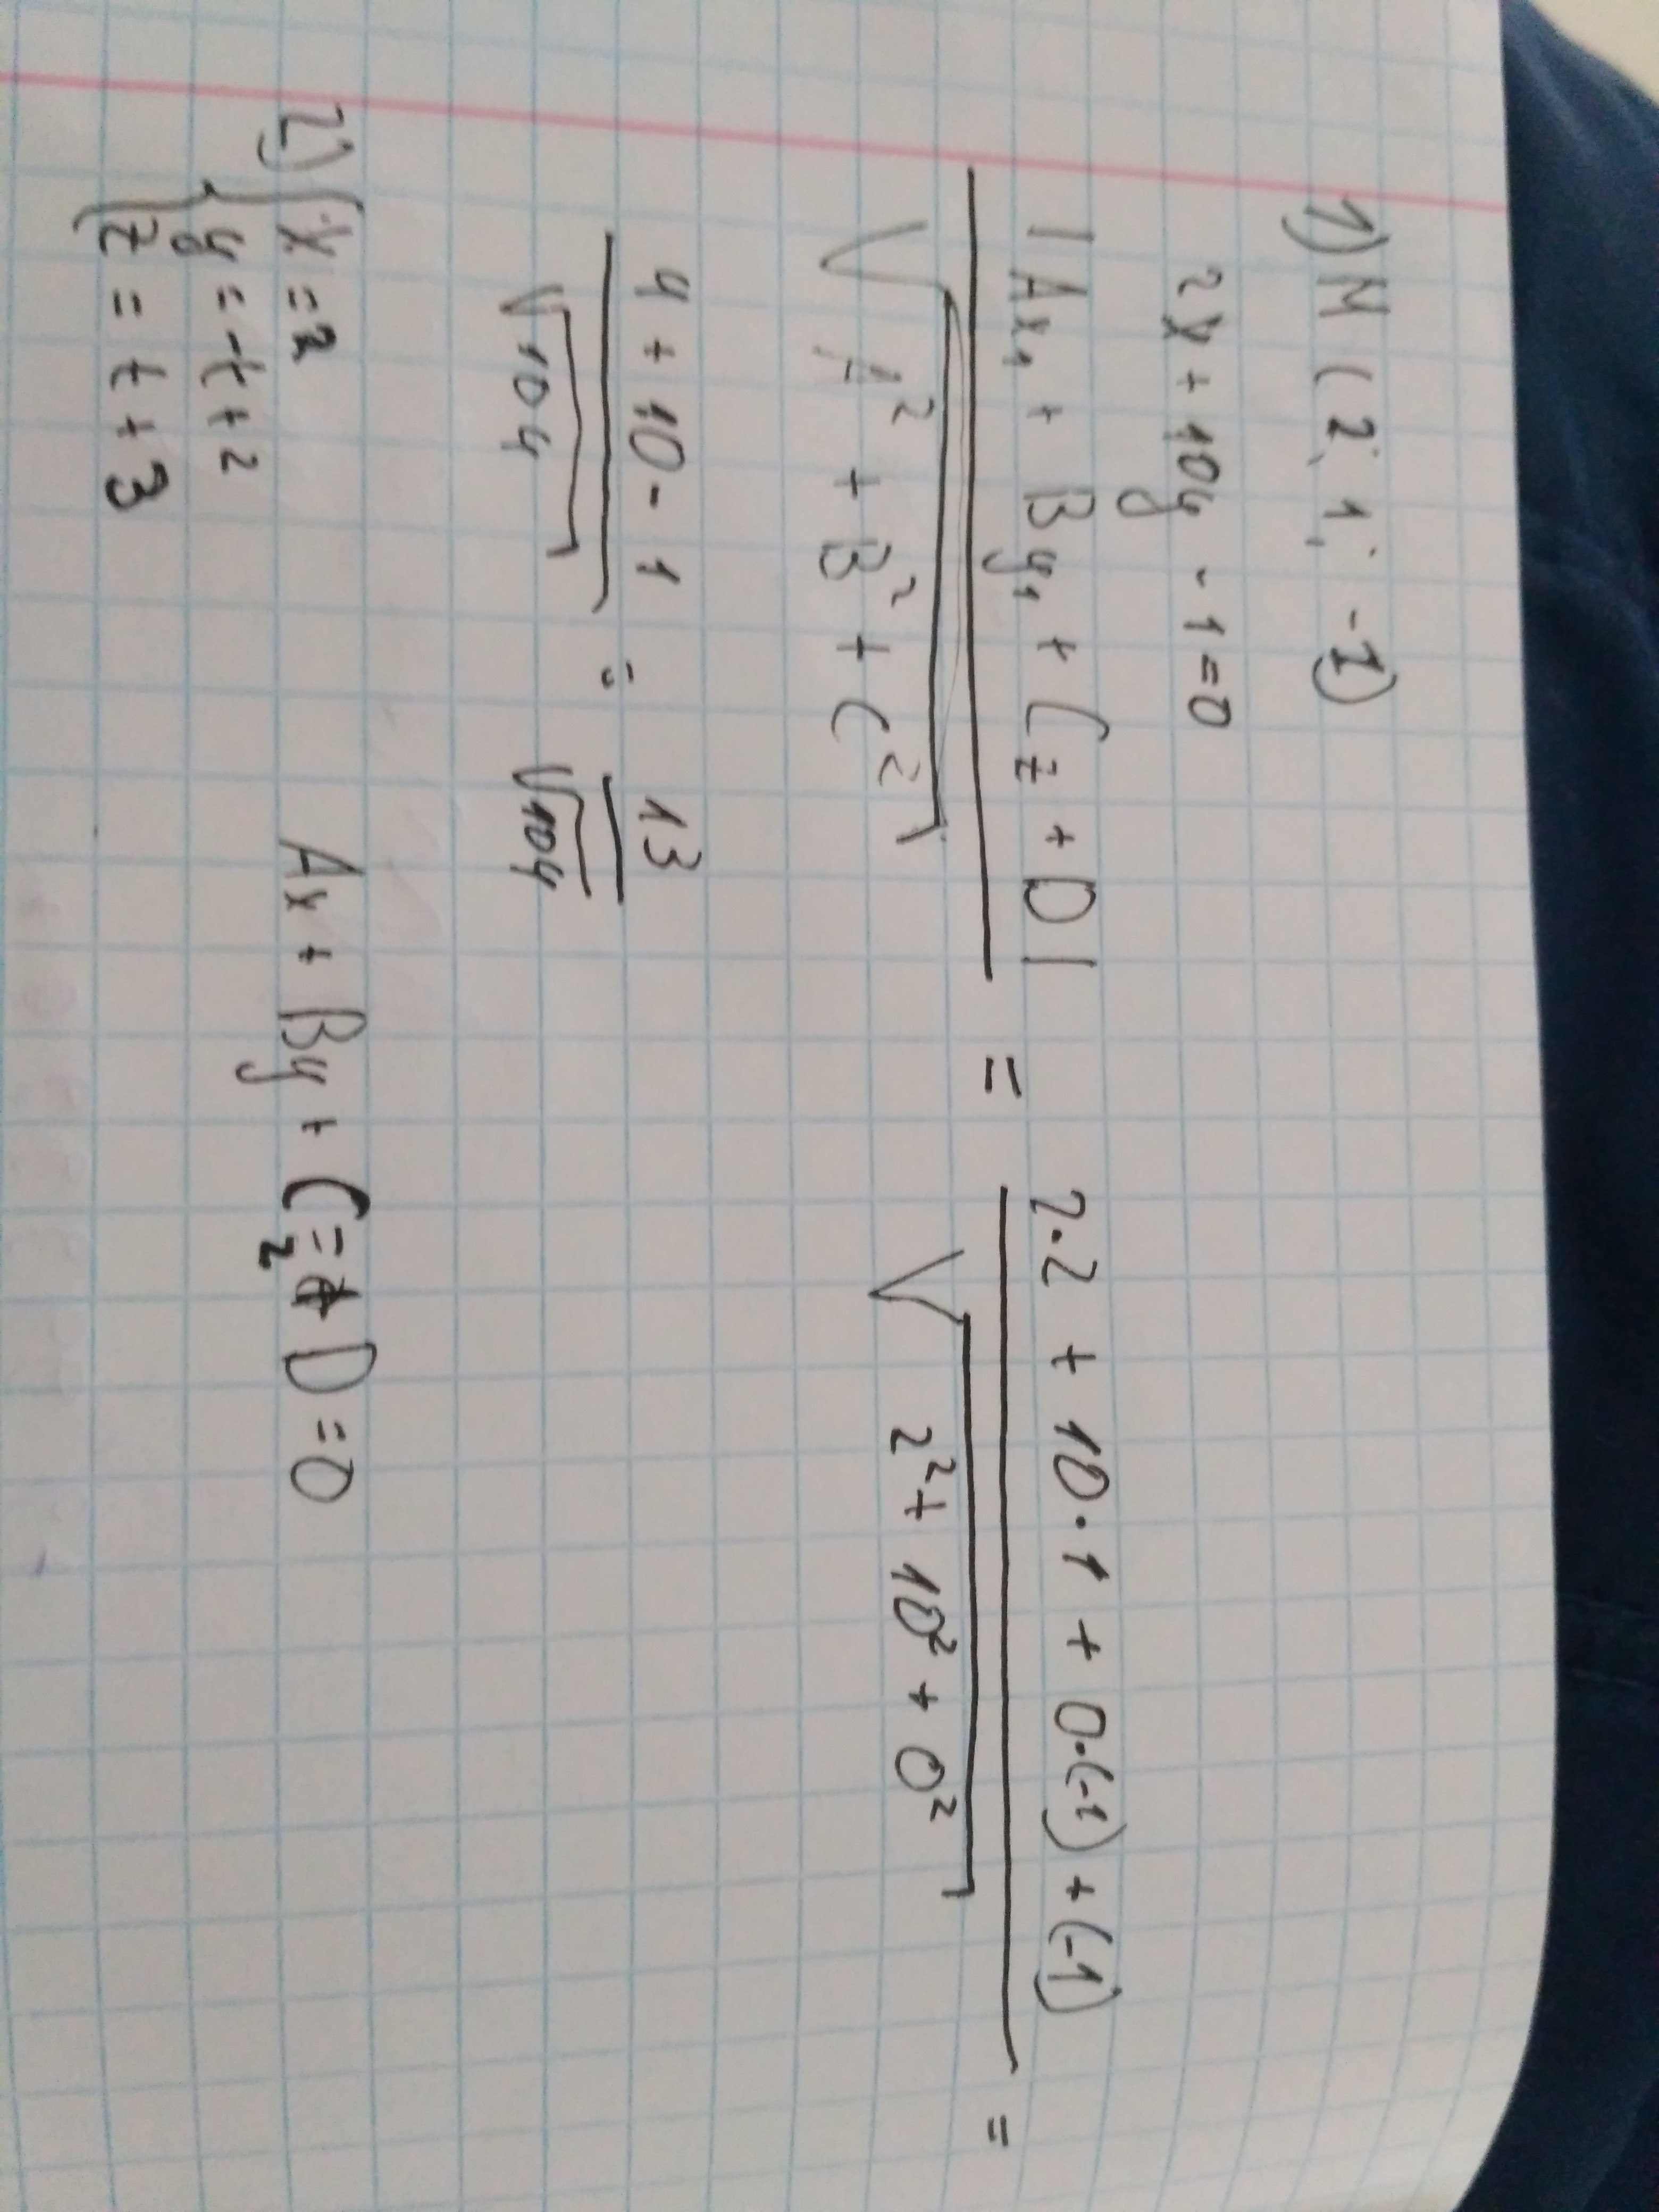 1) M (2; 1; -1)
2x + 10y - 1 = 0
|Ax₁ + By₁ + Cz + D| / √(A² + B² + C²) = (2·2 + 10·1 + 0·(-1) + (-1)) / √(2² + 10² + 0²) =
(4 + 10 - 1) / √104 = 13 / √104
2) { x = 2 Ax + By + Cz + D = 0
y = -t + 2
z = t + 3